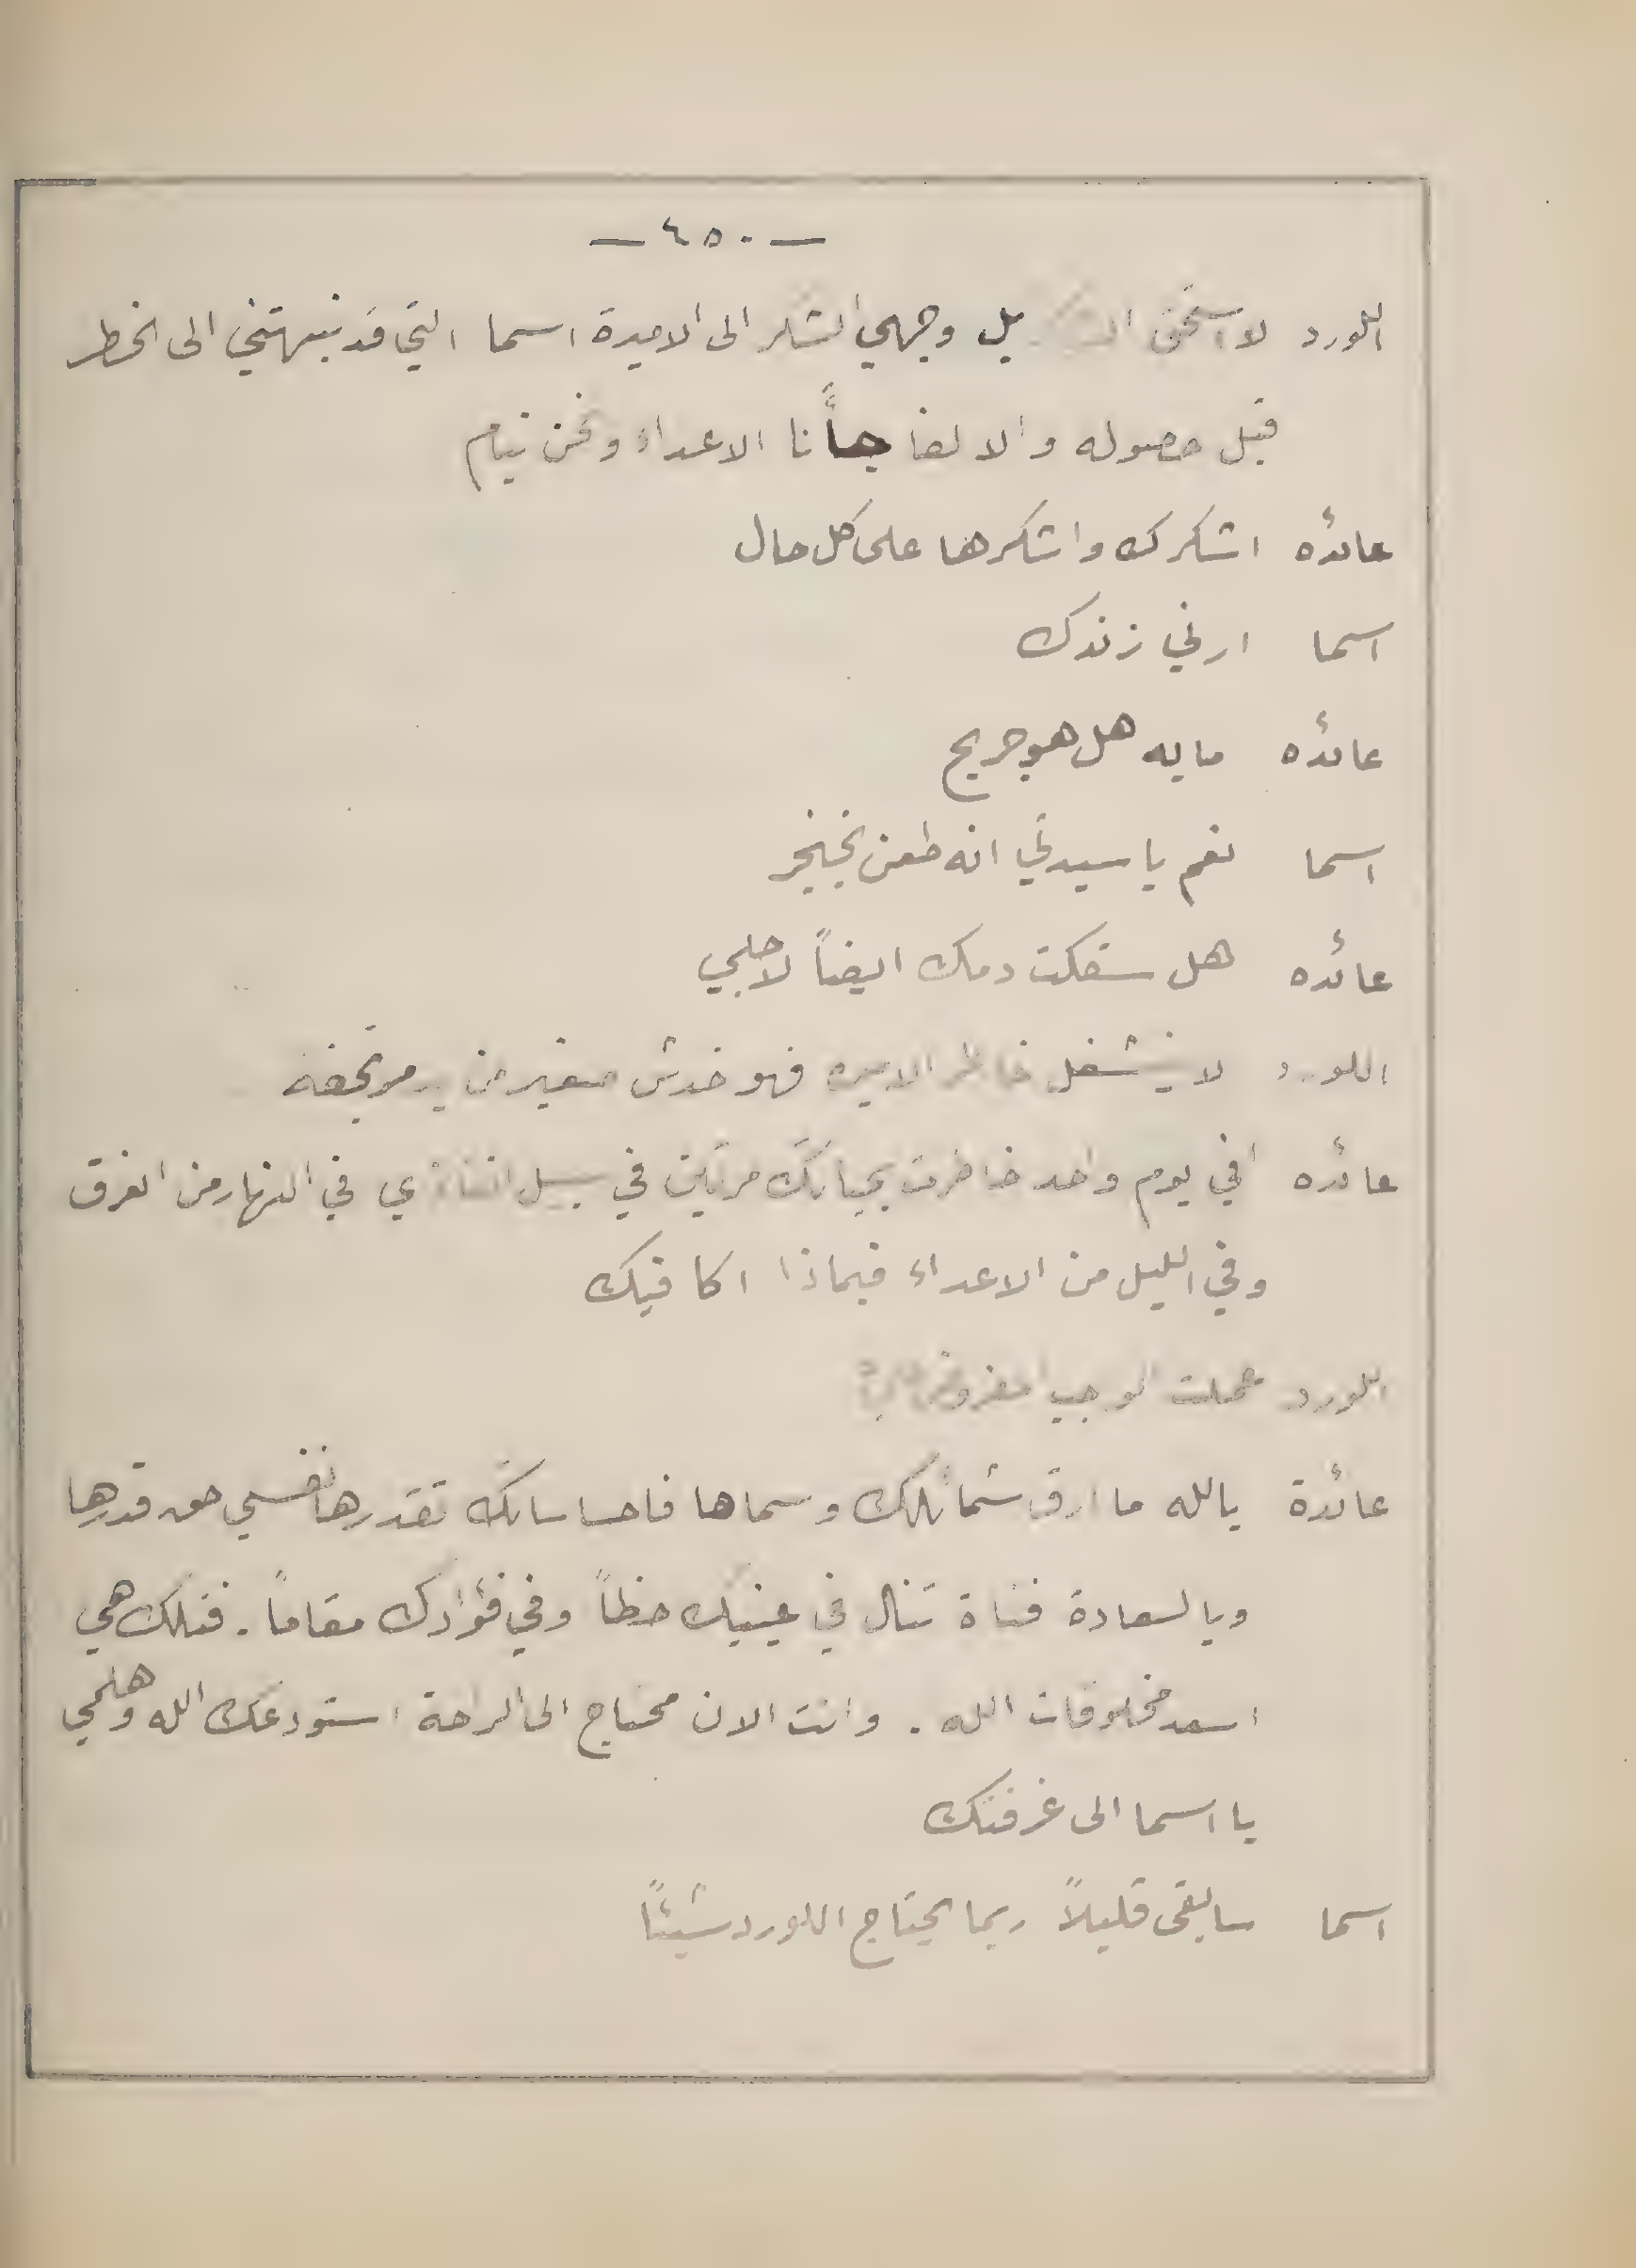 — ٤٥٠ —
اللورد لا استحق بل وجهي الشكر الى الاميرة اسما التي قد نبهتني الى الخطر
قبل حصوله والا لفاجأنا الاعداء ونحن نيام
عائده اشكرك واشكرها على كل حال
اسما ارني زندك
عائده ما به هل هو جريح
اسما نعم يا سيدتي انه طعن بخنجر
عائده هل سفكت دمك ايضاً لاجلي
اللورد لا ينشغل خاطر الاميره فهو خدش صغير من
عائده افي يوم واحد خاطرت بحياتك مرتين في سبيل انقاذي في النهار من الغرق
وفي الليل من الاعداء فبماذا اكافيك
اللورد عملت الوجب المفروض علي
عائدة يالله ما ارق شمائلك وسماها فاحساساتك تقدرها نفسي حق قدرها
ويا لسعادة فتاة تنال في عينيك حظاً وفي فؤادك مقاماً . فتلك هي
اسعد مخلوقات الله . وانت الان محتاج الى الراحة استودعك الله وهلمي
يا اسما الى غرفتك
اسما سابقى قليلاً ربما يحتاج اللورد شيئاً